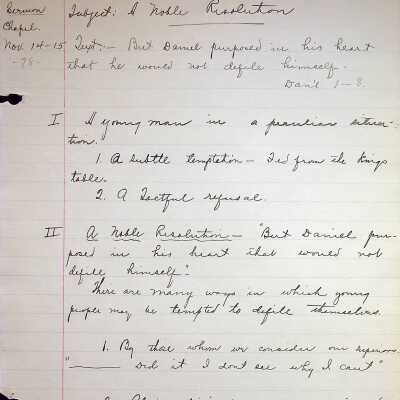 Sermon
Chapel.
Nov. 14-15
Subject: A Noble Resolution
Text:- But Daniel purposed in his heart
that he would not defile himself.
Dan'l 1-8.
I A young man in a peculiar situa-
tion.
1. A subtle temptation - Fed from the Kings
table.
2. A Tactful refusal.
II A Noble Resolution - "But Daniel pur-
posed in his heart that would not
defile himself."
There are many ways in which young
people may be tempted to defile themselves.
1. By those whom we consider our superiors.
"——— did it I dont see why I cant"